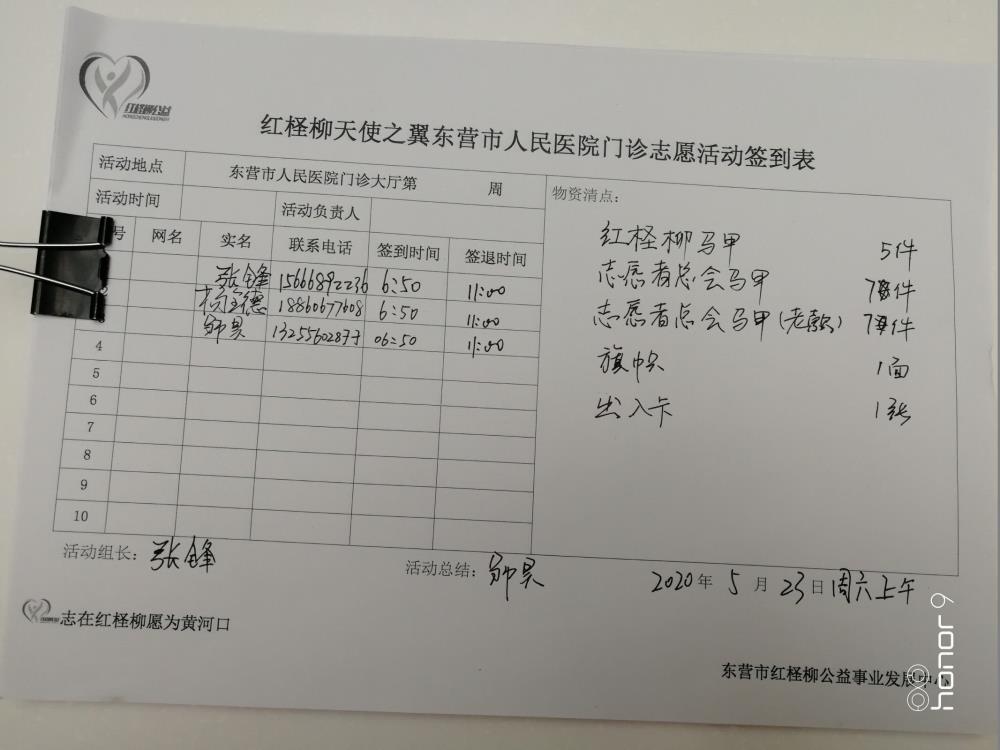 红柽柳公益
HONGCHENGLIUGONGYI
红柽柳天使之翼东营市人民医院门诊志愿活动签到表
活动地点 东营市人民医院门诊大厅第 周
活动时间 活动负责人
号 网名 实名 联系电话 签到时间 签退时间
张锋 15666892236 6:50 11:00
德 18860677608 6:50 11:00
帅昊 13255602877 06:50 11:00
4
5
6
7
8
9
10
物资清点:
红柽柳马甲 5件
志愿者总会马甲 件
志愿者总会马甲(老款) 件
旗帜 1面
出入卡 1张
活动组长: 张锋 活动总结: 帅昊 2020年 5月 23日 周六上午
志在红柽柳愿为黄河口
东营市红柽柳公益事业发展中心
honor 9